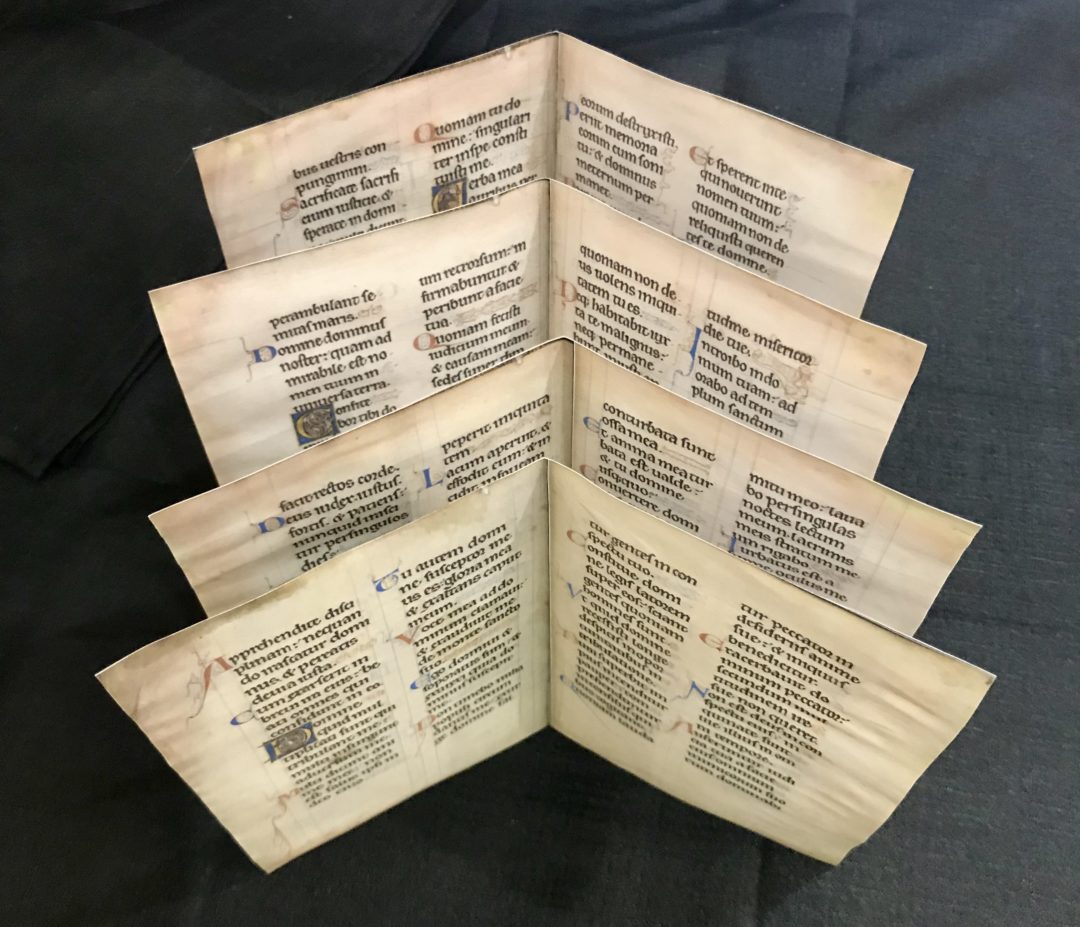 bus uestris con
pungimini.
Sacrificate sacrifi
cium iusticie. &
sperate in domi
Quoniam tu do
mine: singulari
ter inspe consti
tuisti me.
Verba mea
auribus per
eorum destruxisti.
Periit memoria
eorum cum soni
tu: & dominus
ineternum per
manet.
Et sperent inte
qui nouerunt
nomen tuum:
quoniam non de
reliquisti queren
tes te domine.
perambulant se
mitas maris.
Domine dominus
noster: quam ad
mirabile est no
men tuum in
uniuersa terra.
Confite
bor tibi do
um retrorsum: in
firmabuntur &
peribunt a facie
tua.
Quoniam fecisti
iudicium meum
& causam meam:
sedes super thro
quoniam non de
us uolens iniqui
tatem tu es.
Neq; habitabit iux
ta te malignus:
neq; permane
bunt iniusti
tudine misericor
die tue.
Introibo indo
mum tuam: ad
orabo ad tem
plum sanctum
facit rectos corde.
Deus iudex iustus.
fortis. & paciens:
nunquid irasci
tur persingulos
dies
peperit iniquita
tem.
Lacum aperuit. &
effodit eum: & in
cidit in foueam
conturbata sunt
ossa mea.
Et anima mea tur
bata est ualde:
& tu domine
usquequo.
Conuertere domi
mitu meo: laua
bo persingulas
noctes lectum
meum. lacrimis
meis stratum me
um rigabo.
Turbatus est a
oculus me
Apprehendite disci
plinam: nequan
do irascatur domi
nus. & pereatis
de uia iusta.
Cum exarserit in
breui ira eius: be
ati omnes qui
confidunt in eo.
Domine
quid mul
tiplicati sunt qui
tribulant me:
multi insurgunt
aduersum me.
Multi dicunt ani
me mee: non
est salus ipsi in
deo eius
Tu autem domi
ne. susceptor me
us es: gloria mea
& exaltans caput
meum.
Voce mea ad do
minum clamaui:
& exaudiuit me
de monte sancto
suo.
Ego dormiui &
soporatus sum: &
Non timebo milia
tur gentes in con
spectu tuo.
Constitue. domi
ne legis latorem
super eos: sciant
gentes quoniam
homines sunt.
Vt quid domine
recessisti longe:
tur peccator in
desideriis anime
sue: & iniquus
benedicitur.
Exacerbauit do
minum peccator:
secundum multi
tudinem ire
sue. non queret.
Non est deus in con
spectu eius: